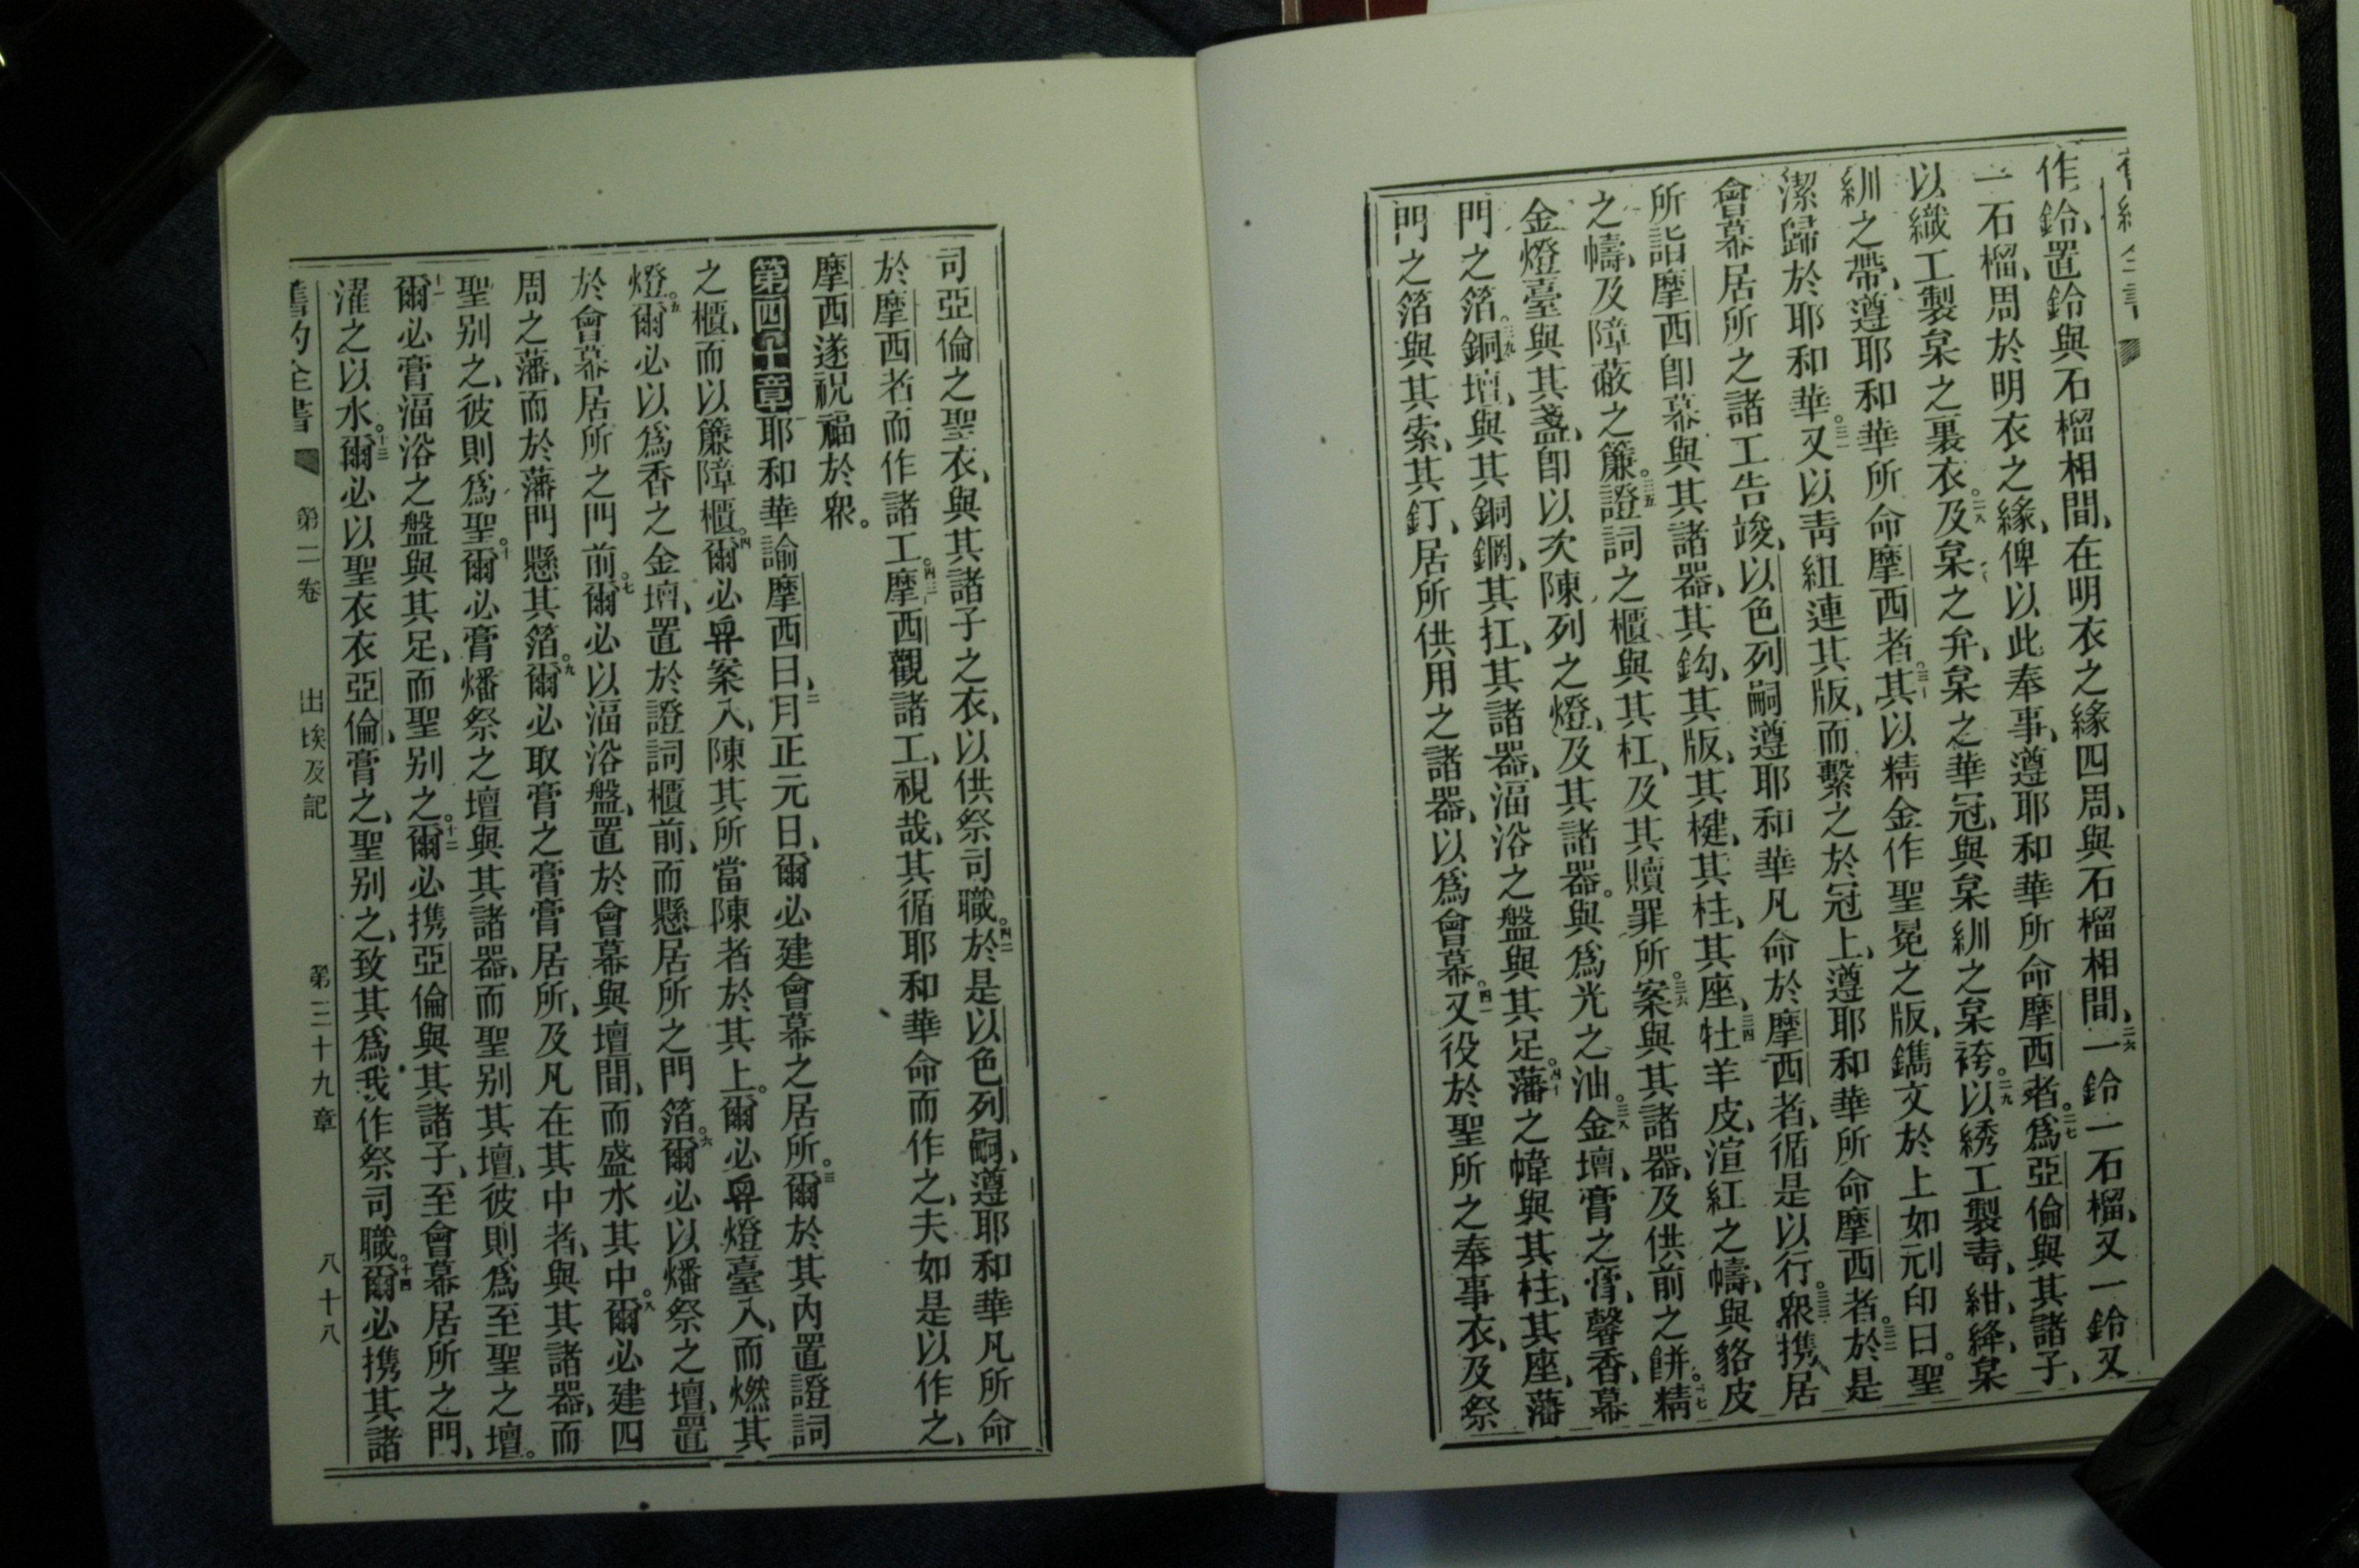 作鈴、置鈴與石榴相間、在明衣之緣四周、與石榴相間、二六一鈴一石榴、又一鈴又
一石榴、周於明衣之緣、俾以此奉事、遵耶和華所命摩西者。二七爲亞倫與其諸子、
以織工製枲之裏衣。二八及枲之弁、枲之華冠、與枲紃之枲袴。二九以綉工製靑、紺、絳、枲
紃之帶、遵耶和華所命摩西者。三十其以精金作聖冕之版、鐫文於上如刓印曰。聖
潔歸於耶和華。三一又以靑組連其版、而繫之於冠上、遵耶和華所命摩西者。三二於是
會幕居所之諸工告竣、以色列嗣遵耶和華凡命於摩西者、循是以行。三三衆携居
所詣摩西卽幕與其諸器、其鈎、其版、其楗、其柱、其座、三四牡羊皮、渲紅之幬、與貉皮
之幬、及障蔽之簾。三五證詞之櫃與其杠、及其贖罪所。三六案與其諸器、及供前之餅。三七精
金燈臺與其盞、卽以次陳列之燈、及其諸器。與爲光之油。三八金壇、膏之膏、馨香、幕
門之箔。三九銅壇、與其銅鋼、其扛、其諸器、湢浴之盤與其足。四十藩之幃與其柱、其座、藩
門之箔與其索、其釘、居所供用之諸器、以爲會幕。四一又役於聖所之奉事衣、及祭
司亞倫之聖衣、與其諸子之衣、以供祭司職。四二於是以色列嗣、遵耶和華凡所命
於摩西者而作諸工。四三摩西觀諸工、視哉、其循耶和華命而作之、夫如是以作之、
摩西遂祝福於衆。
第四十章 一耶和華諭摩西曰、二月正元日、爾必建會幕之居所。三爾於其內置證詞
之櫃、而以簾障櫃。四爾必舁案入、陳其所當陳者於其上。爾必舁燈臺入、而燃其
燈。五爾必以爲香之金壇、置於證詞櫃前、而懸居所之門箔。六爾必以燔祭之壇、置
於會幕居所之門前。七爾必以湢浴盤、置於會幕與壇間、而盛水其中。八爾必建四
周之藩、而於藩門懸其箔。九爾必取膏之膏膏居所、及凡在其中者、與其諸器、而
聖別之、彼則爲聖。十爾必膏燔祭之壇與其諸器、而聖別其壇、彼則爲至聖之壇。
十一爾必膏湢浴之盤與其足、而聖別之。十二爾必携亞倫與其諸子、至會幕居所之門、
濯之以水。十三爾必以聖衣衣亞倫、膏之、聖別之、致其爲我作祭司職。十四爾必携其諸
舊約全書 第二卷 出埃及記 第三十九章 八十八